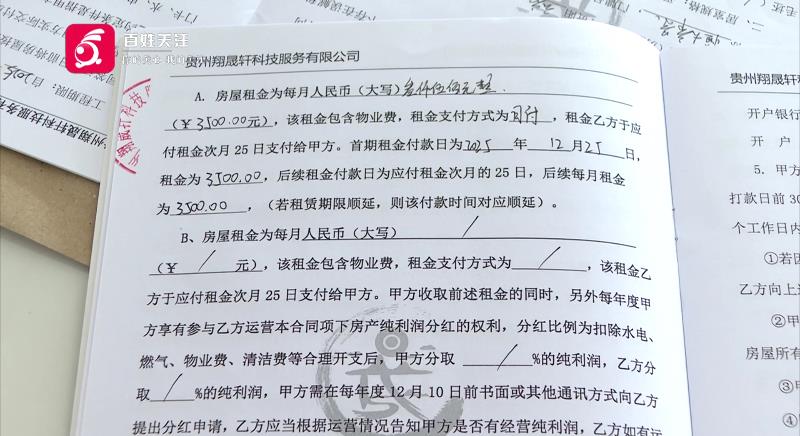 百姓关注
贵州翔晟轩科技服务有限公司
A. 房屋租金为每月人民币（大写）叁仟伍佰元整.
（￥3500.00元），该租金包含物业费，租金支付方式为月付，租金乙方于应
付租金次月 25 日支付给甲方。首期租金付款日为2025 年 12 月25 日，
租金为 3500.00，后续租金付款日为应付租金次月的 25 日，后续每月租金
为 3500.00，（若租赁期限顺延，则该付款时间对应顺延）。
B、房屋租金为每月人民币（大写） /
（￥ / 元），该租金包含物业费，租金支付方式为 / ，该租金乙
方于应付租金次月 25 日支付给甲方。甲方收取前述租金的同时，另外每年度甲
方享有参与乙方运营本合同项下房产纯利润分红的权利，分红比例为扣除水电、
燃气、物业费、清洁费等合理开支后，甲方分取 / %的纯利润，乙方分
取 / %的纯利润，甲方需在每年度 12 月 10 日前书面或其他通讯方式向乙方
提出分红申请，乙方应当根据运营情况告知甲方是否有经营纯利润，乙方如有运
贵州翔晟轩科
开户银行
开 户
5. 甲方
打款日前 30
个工作日内
①若因
乙方向上
②甲
房屋所有
③甲
④
工程期限：自2025